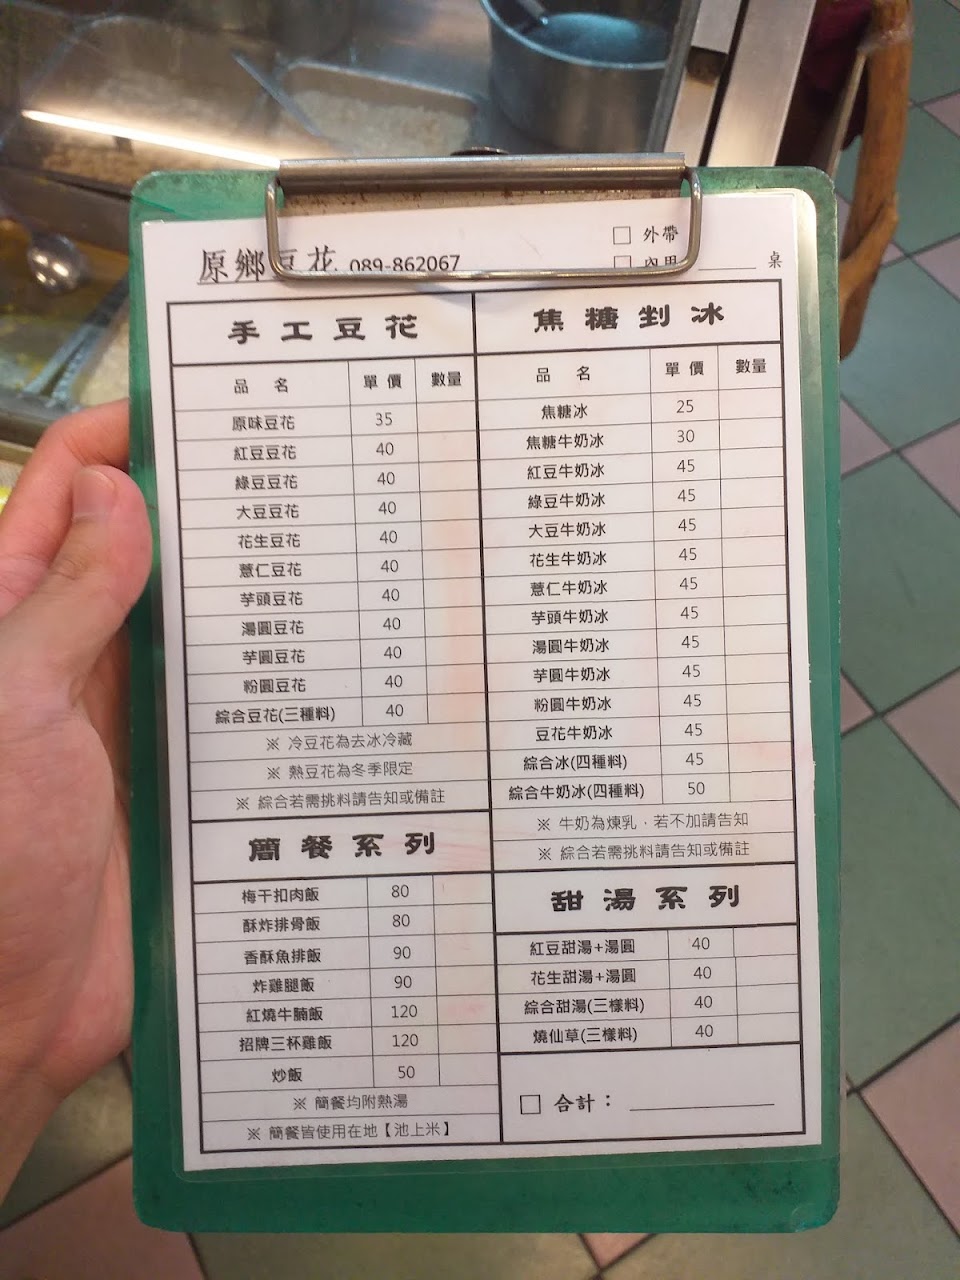 原鄉豆花 089-862067
□ 外帶
□ 內用 ______ 桌
手工豆花
品名 單價 數量
原味豆花 35
紅豆豆花 40
綠豆豆花 40
大豆豆花 40
花生豆花 40
薏仁豆花 40
芋頭豆花 40
湯圓豆花 40
芋圓豆花 40
粉圓豆花 40
綜合豆花(三種料) 40
※ 冷豆花為去冰冷藏
※ 熱豆花為冬季限定
※ 綜合若需挑料請告知或備註
簡餐系列
梅干扣肉飯 80
酥炸排骨飯 80
香酥魚排飯 90
炸雞腿飯 90
紅燒牛腩飯 120
招牌三杯雞飯 120
炒飯 50
※ 簡餐均附熱湯
※ 簡餐皆使用在地【池上米】
焦糖剉冰
品名 單價 數量
焦糖冰 25
焦糖牛奶冰 30
紅豆牛奶冰 45
綠豆牛奶冰 45
大豆牛奶冰 45
花生牛奶冰 45
薏仁牛奶冰 45
芋頭牛奶冰 45
湯圓牛奶冰 45
芋圓牛奶冰 45
粉圓牛奶冰 45
豆花牛奶冰 45
綜合冰(四種料) 45
綜合牛奶冰(四種料) 50
※ 牛奶為煉乳，若不加請告知
※ 綜合若需挑料請告知或備註
甜湯系列
紅豆甜湯+湯圓 40
花生甜湯+湯圓 40
綜合甜湯(三樣料) 40
燒仙草(三樣料) 40
□ 合計：__________